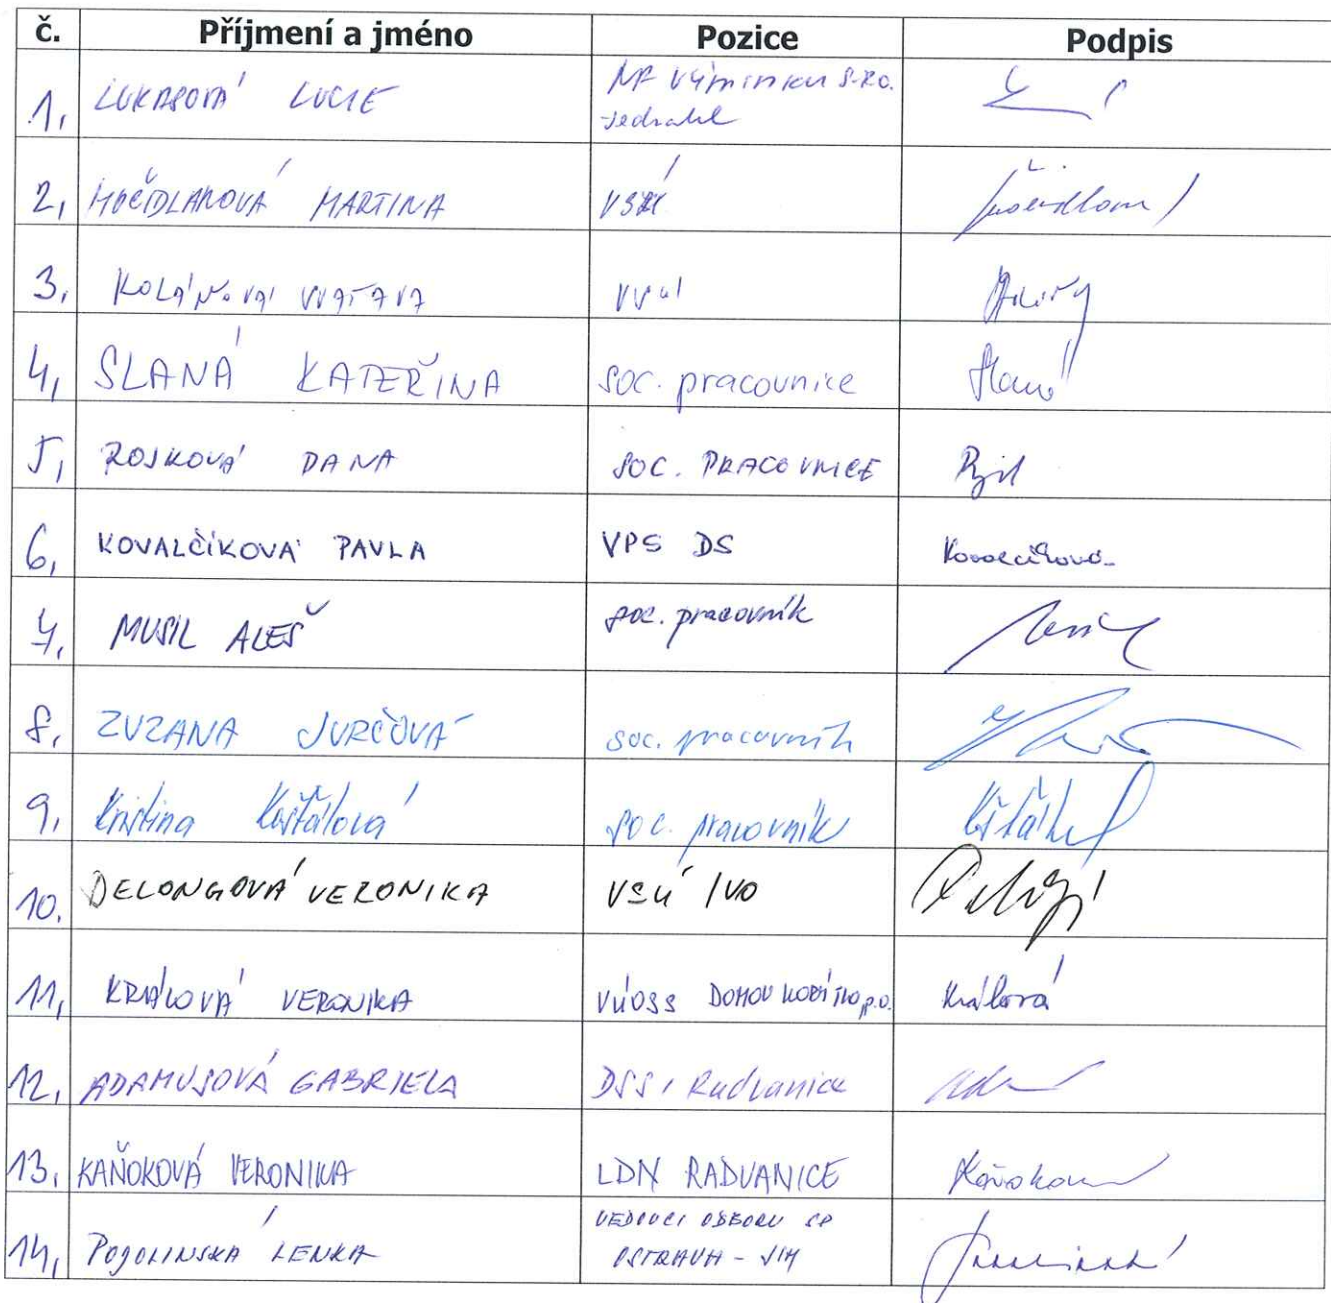 č. Příjmení a jméno Pozice Podpis
1, LUKASOVÁ LUCIE NA Výminku s.r.o.
jednatel
2, MOČIDLANOVÁ MARTINA
3,
4, SLANÁ KATEŘINA soc. pracovnice Slaná
5, DANA SOC. PRACOVNICE
6, KOVALČÍKOVÁ PAVLA VPS DS Kovalčíková
7, MUSIL ALEŠ soc. pracovník Musil
8, ZUZANA JURČOVÁ soc. pracovník
9, Kristina Košťálová soc. pracovník
10. DELONGOVÁ VERONIKA VSÚ IVO
11, KRÁLOVÁ VERONIKA VÚOSS DOMOV KORÝTKO p.o. Králová
12, ADAMUSOVÁ GABRIELA DSS, Radvanice
13, KAŇOKOVÁ VERONIKA LDN RADVANICE Kaňoková
14, POJOLINSKÁ LENKA VEDOUCÍ ODBORU SP
OSTRAVA - JIH